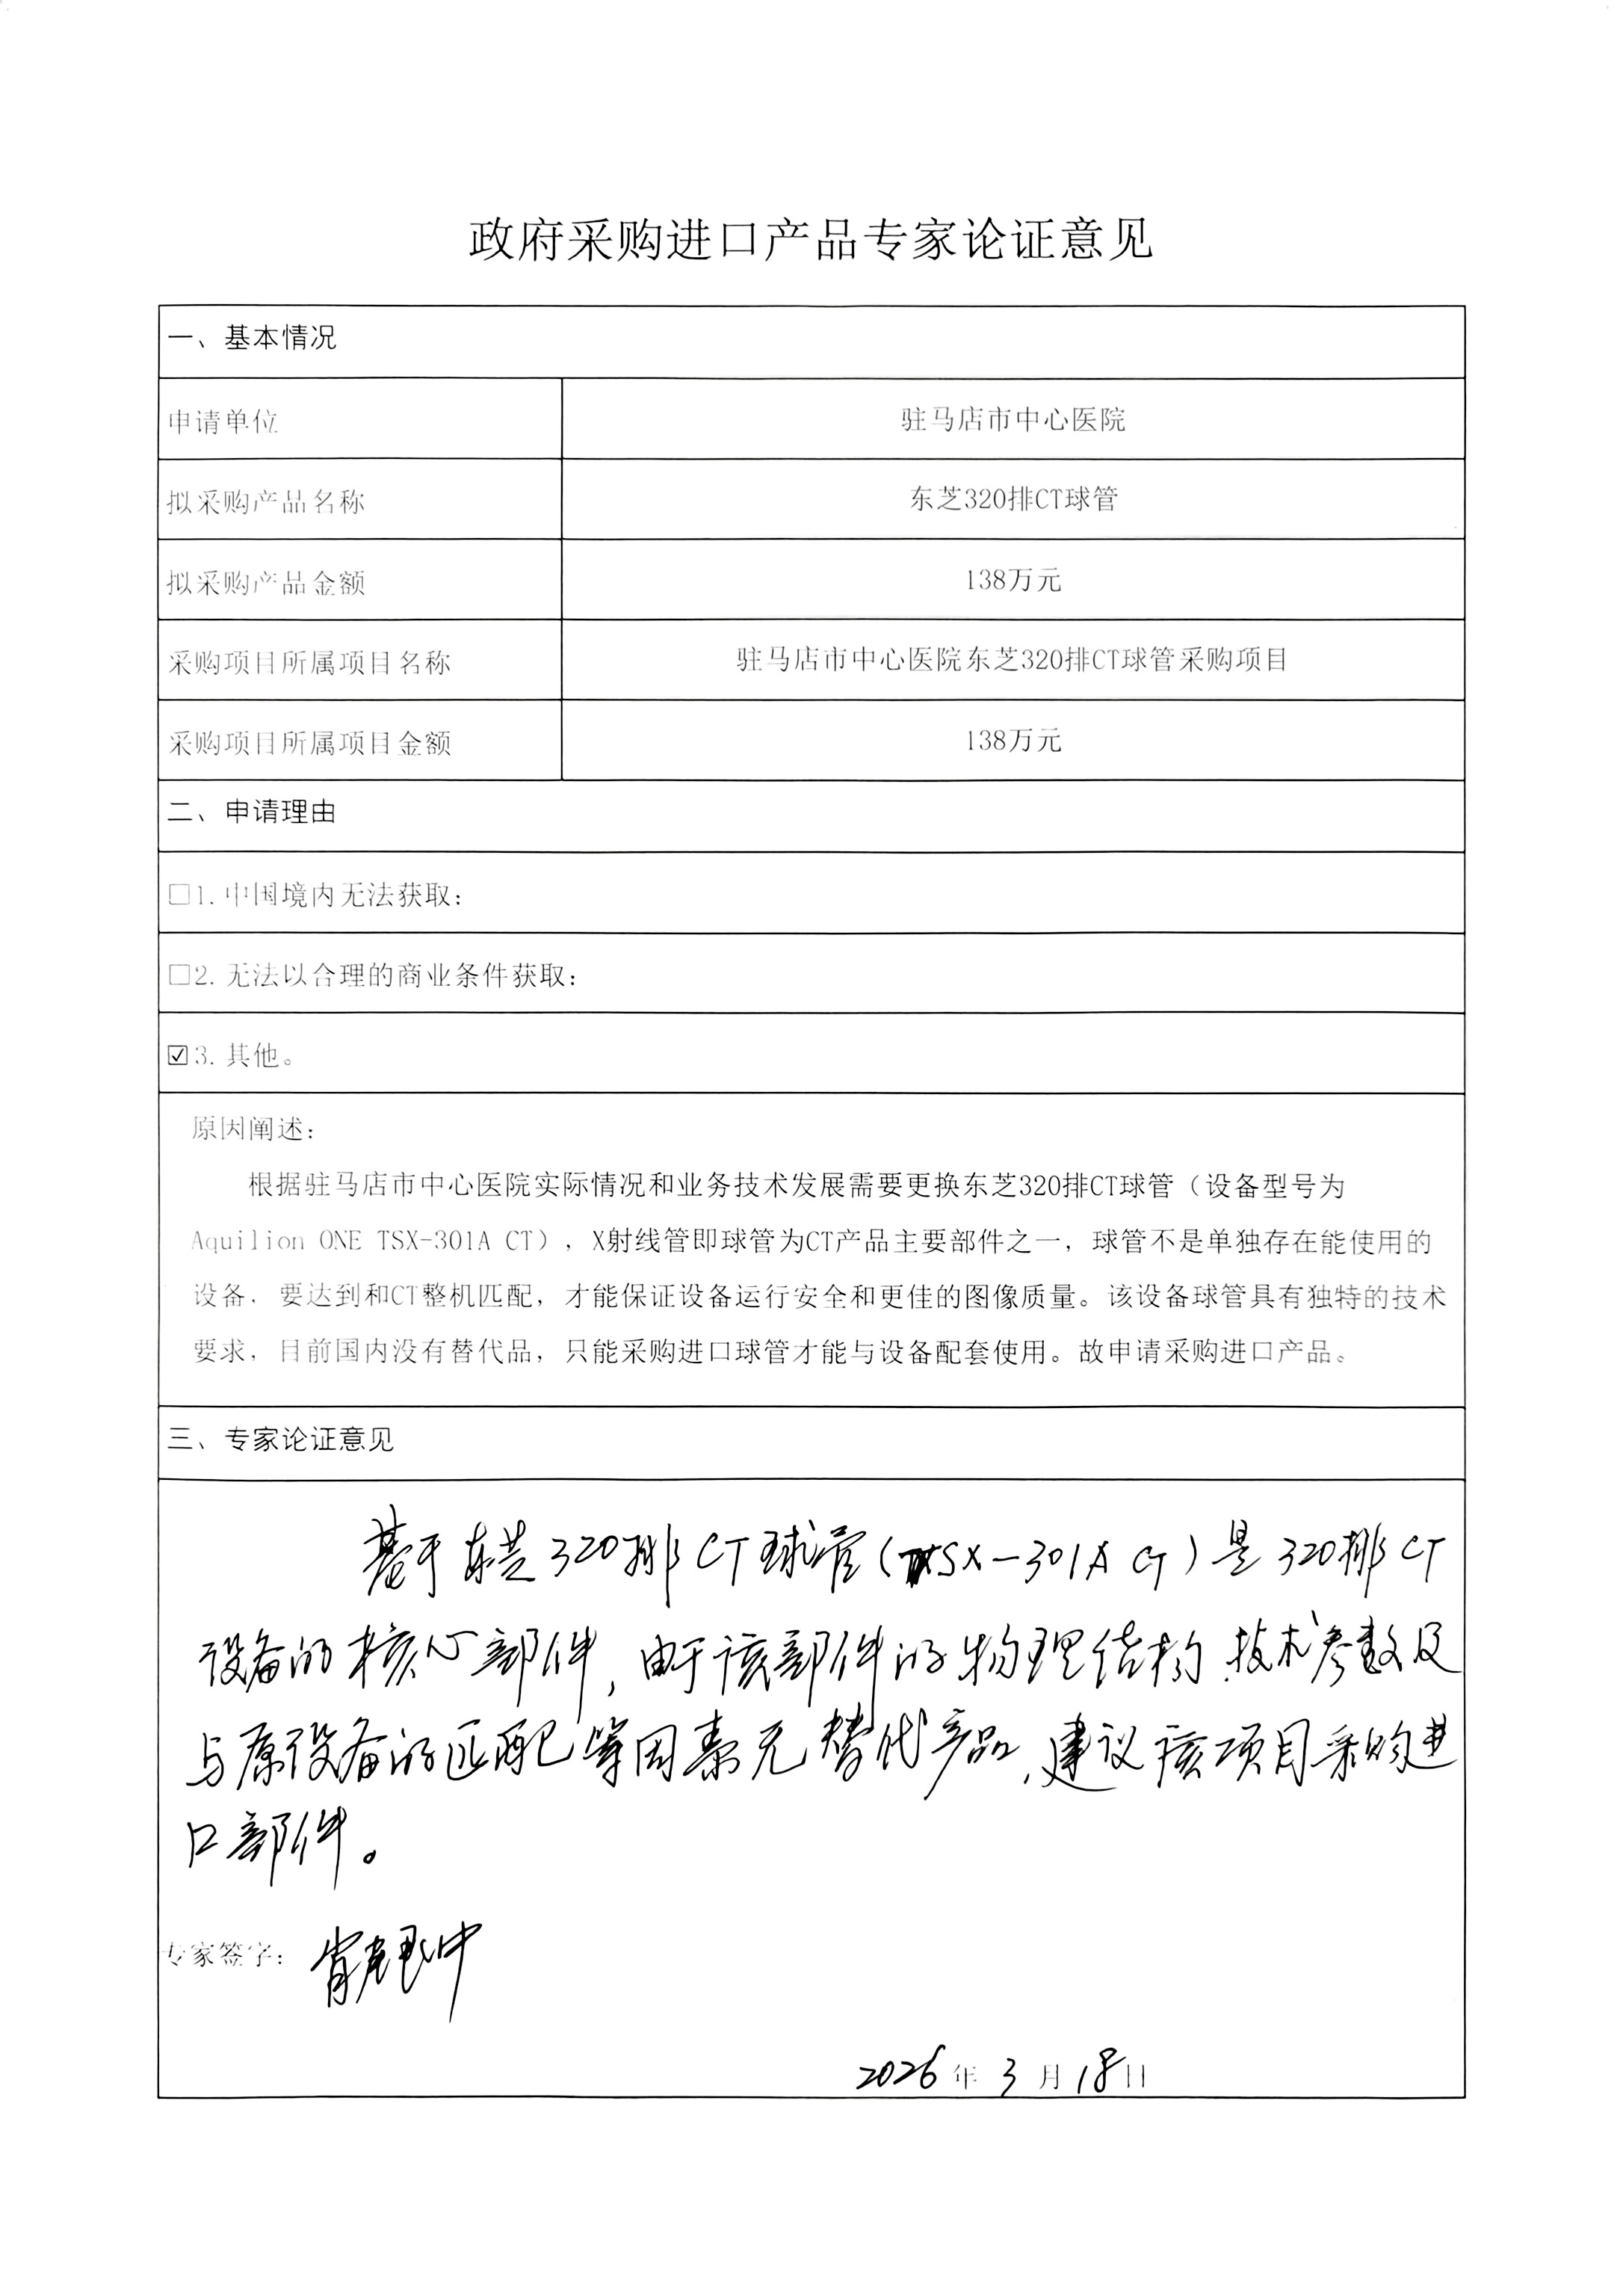 政府采购进口产品专家论证意见
一、基本情况
申请单位
驻马店市中心医院
拟采购产品名称
东芝320排CT球管
拟采购产品金额
138万元
采购项目所属项目名称
驻马店市中心医院东芝320排CT球管采购项目
采购项目所属项目金额
138万元
二、申请理由
□1. 中国境内无法获取：
□2. 无法以合理的商业条件获取：
☑3. 其他。
原因阐述：
根据驻马店市中心医院实际情况和业务技术发展需要更换东芝320排CT球管（设备型号为
Aquilion ONE TSX-301A CT），X射线管即球管为CT产品主要部件之一，球管不是单独存在能使用的
设备，要达到和CT整机匹配，才能保证设备运行安全和更佳的图像质量。该设备球管具有独特的技术
要求，目前国内没有替代品，只能采购进口球管才能与设备配套使用。故申请采购进口产品。
三、专家论证意见
基于东芝320排CT球管(TSX-301A CT)是320排CT
设备的核心部件，由于该部件的物理结构、技术参数及
与原设备的匹配等因素无替代产品，建议该项目采购进
口部件。
专家签字：
2026年3月18日